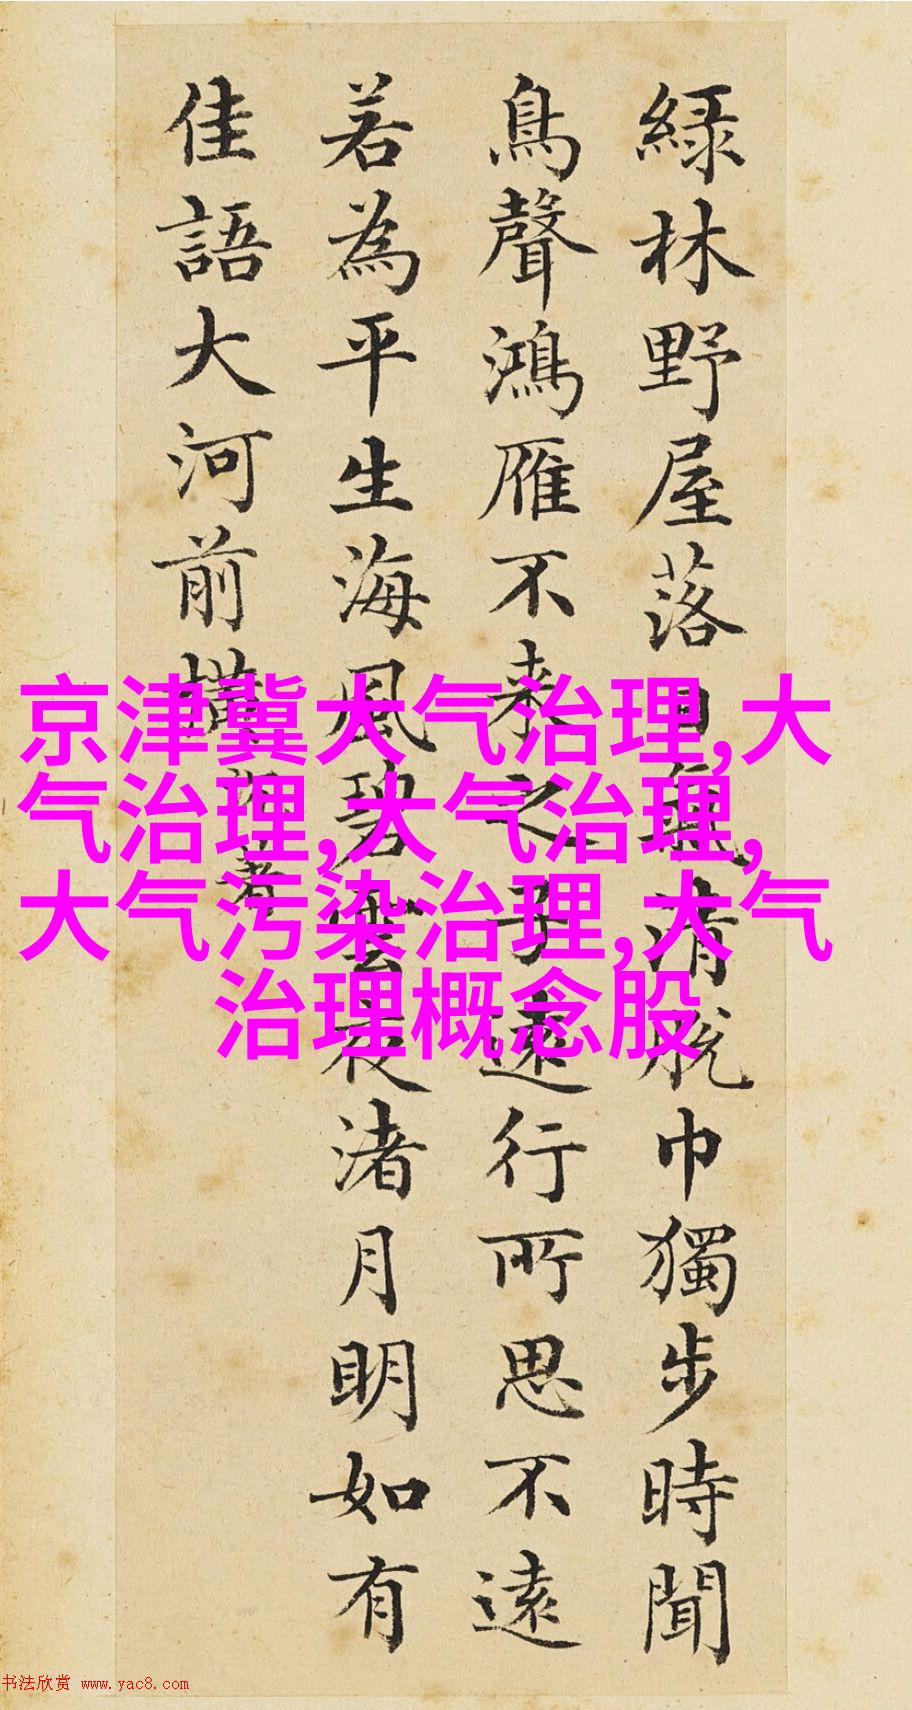 綠林野屋落日氣清脫巾獨步時聞
鳥聲鴻雁不來之子遠行所思不遠
若為平生海風碧雲夜渚月明如有
佳語大河前橫
京津冀大气治理,大
气治理,大气治理,
大气污染治理,大气
治理概念股
书法欣赏 www.yac8.com